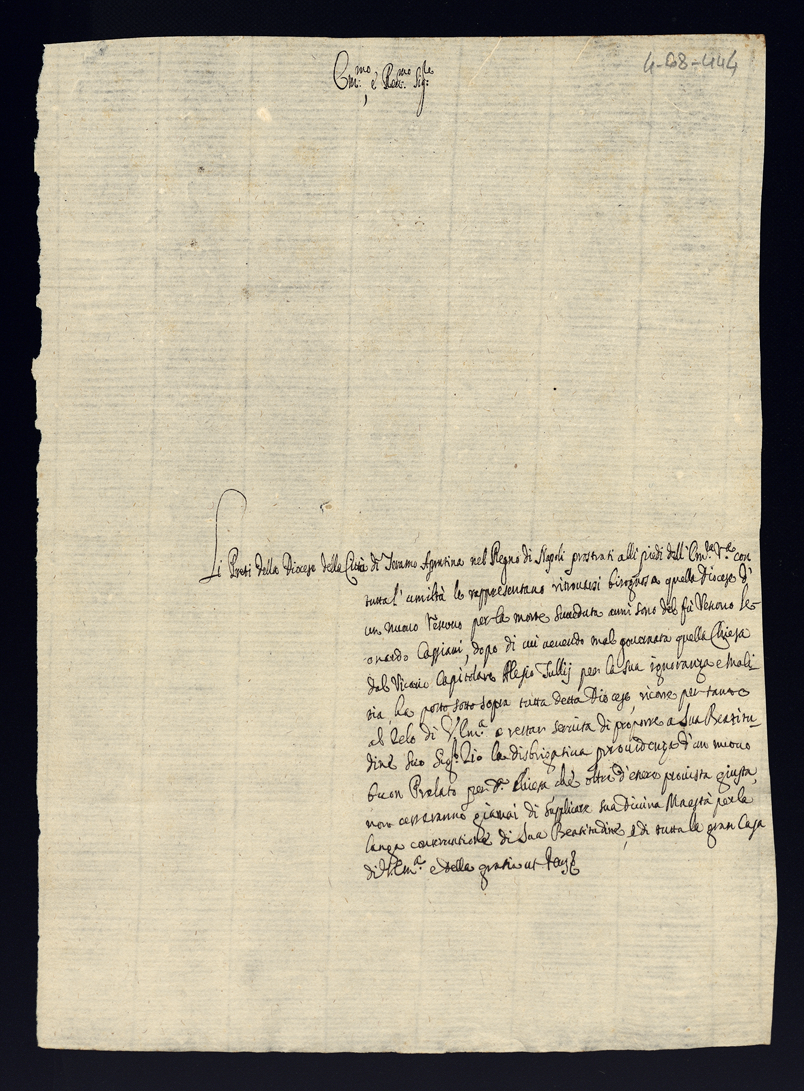 4-68-444
Em.mo è Rev.mo Sig.re
Li Preti della Diocese della Città di Teramo Aprutina nel Regno di Napoli prostrati alli piedi dell'Em.za V.ra con
tutta l'umiltà le rappresentano ritrovarsi bisognosa quella Diocese d'
un nuovo Vescovo per la morte succeduta anni sono del fù Vescovo Le-
onardo Cassiani, dopo di cui avendo mal governata quella Chiesa
dal Vicario Capitolare Alesio Tullij per la sua ignoranza e mali-
zia, ha posto sotto sopra tutta detta Diocese, ricorre per tanto
al Zelo di V. Em.a a restar servita di proporre a Sua Beatitu-
dine suo Sig.r Zio la disbrigativa providenza d'un nuovo
buon Prelato per d.a Chiesa che oltre d'essere provista giusta,
non cesseranno giamai di supplicare sua Divina Maestà per la
longa conservatione di Sua Beatitudine, e di tutta la gran Casa
di V. Em.a e della gratia ut Deus